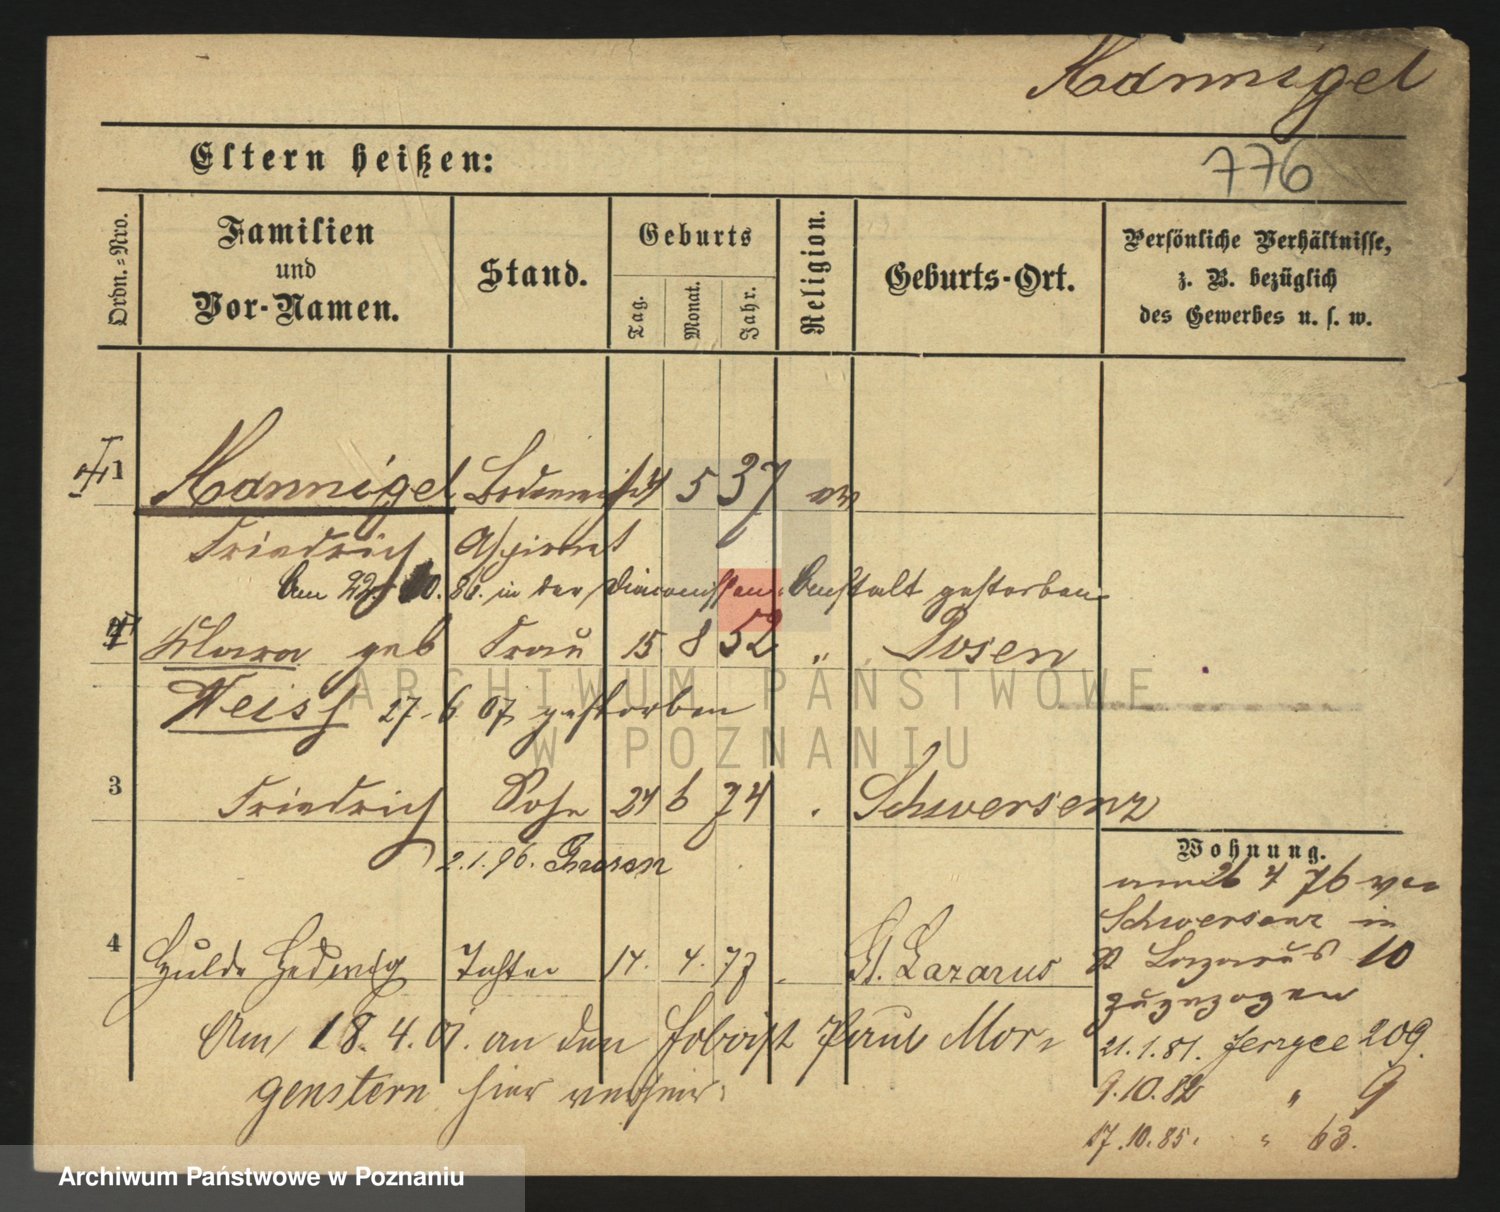 Mannigel
776
Eltern heißen:
Ordn.-Nro.
Familien und Vor-Namen.
Stand.
Geburts
Tag.
Monat.
Jahr.
Religion.
Geburts-Ort.
Persönliche Verhältnisse, z. B. bezüglich des Gewerbes u. s. w.
1 Mannigel 5 37 ev
Friedrich Aspirant
Am 22. 10. 86. in der Diaconissen-Anstalt gestorben
Klara geb Frau 15 8 52 " Posen
Weiss 27. 6 07 gestorben
3 Friedrich Sohn 24 6 74 . Schwersenz
2.1.96. Gnesen
Wohnung.
am 26 4 76 von
Schwersenz in
St Lazarus 10
zugezogen
4 Hulda Hedwig Tochter 14. 4. 77 St. Lazarus
Am 18. 4. 01. an den Hoboist Paul Mor-
genstern hier verheir.
21.1.81. Jerzyce 209.
9.10.82 " 9
17.10.85. " 63.
ARCHIWUM PAŃSTWOWE
W POZNANIU
Archiwum Państwowe w Poznaniu